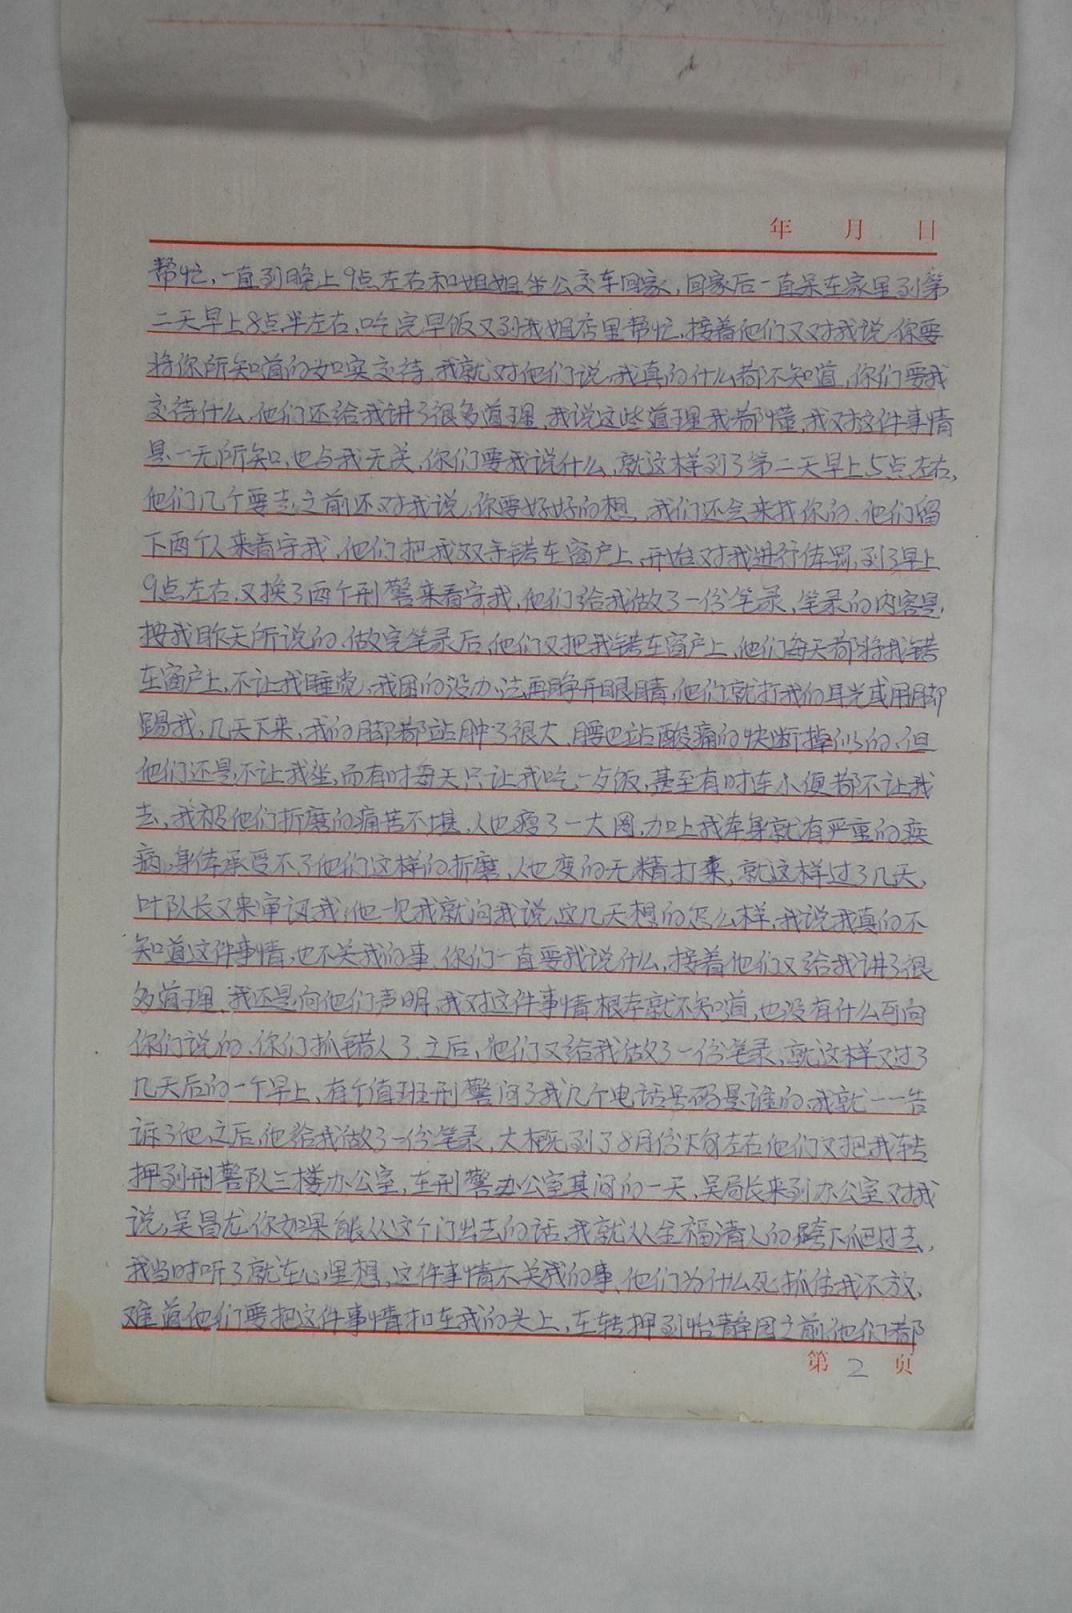 年 月 日
帮忙，一直到晚上9点左右和姐姐坐公交车回家，回家后一直呆在家里到第
二天早上8点半左右，吃完早饭又到我姐店里帮忙，接着他们又对我说，你要
将你所知道的如实交待，我就对他们说，我真的什么都不知道，你们要我
交待什么，他们还给我讲了很多道理，我说这些道理我都懂，我对这件事情
是一无所知，也与我无关，你们要我说什么，就这样到了第二天早上5点左右，
他们几个要走之前还对我说，你要好好的想，我们还会来找你的，他们留
下两个人来看守我，他们把我双手铐在窗户上，开始对我进行体罚，到了早上
9点左右，又换了两个刑警来看守我，他们给我做了一份笔录，笔录的内容是
按我昨天所说的，做完笔录后，他们又把我铐在窗户上，他们每天都将我铐
在窗户上，不让我睡觉，我困的没办法再睁开眼睛，他们就打我的耳光或用脚
踢我，几天下来，我的脚都站肿了很大，腰也站酸痛的快断掉似的，但
他们还是不让我坐，而有时每天只让我吃一歺饭，甚至有时连小便都不让我
去，我被他们折磨的痛苦不堪，人也瘦了一大圈，加上我本身就有严重的疾
病，身体承受不了他们这样的折磨，人也变的无精打采，就这样过了几天，
叶队长又来审讯我，他一见我就问我说，这几天想的怎么样，我说我真的不
知道这件事情，也不关我的事，你们一直要我说什么，接着他们又给我讲了很
多道理，我还是向他们声明，我对这件事情根本就不知道，也没有什么可向
你们说的，你们抓错人了，之后，他们又给我做了一份笔录，就这样又过了
几天后的一个早上，有个值班刑警问了我几个电话号码是谁的，我就一一告
诉了他，之后，他给我做了一份笔录，大概到了8月份下旬左右他们又把我转
押到刑警队三楼办公室，在刑警办公室其间的一天，吴局长来到办公室又对我
说，吴昌龙你如果能从这个门出去的话，我就从全福清人的胯下爬过去，
我当时听了就在心里想，这件事情不关我的事，他们为什么死抓住我不放，
难道他们要把这件事情扣在我的头上，在转押到怡静园之前，他们都
第 2 页